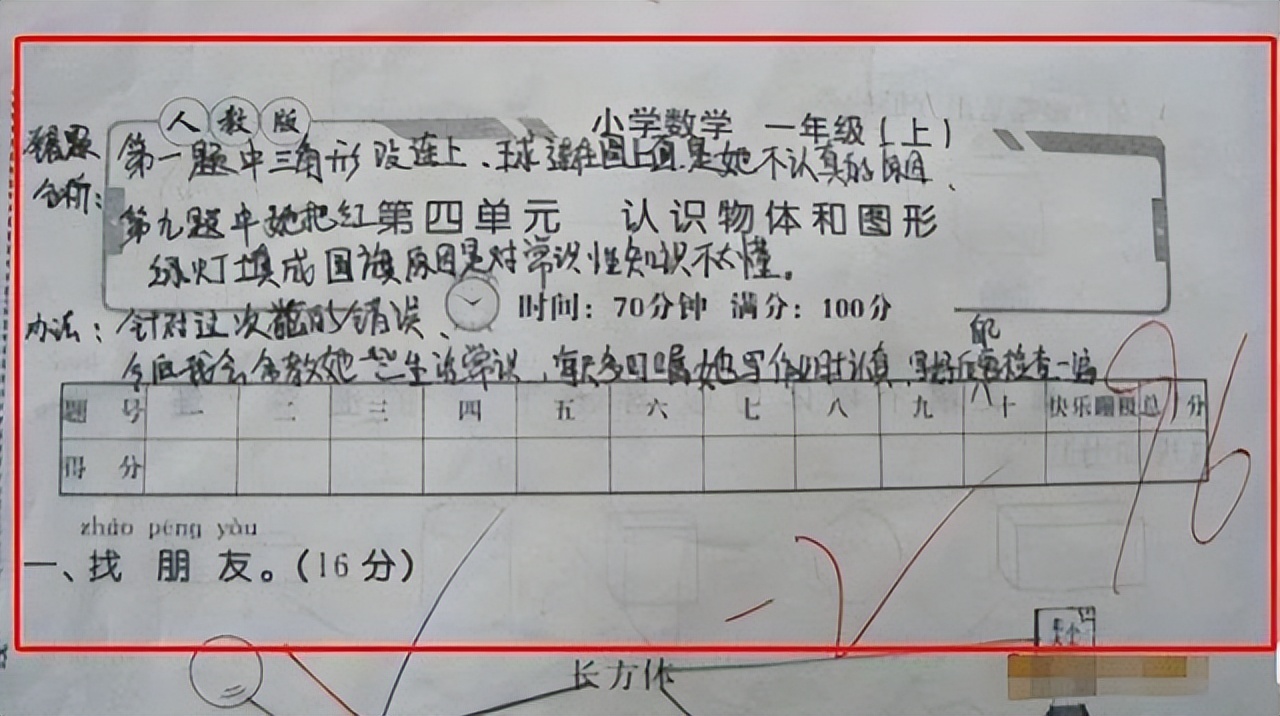 人教版
小学数学 一年级(上)
错题
分析:
第一题中三角形没连上、球连在图上面是她不认真的原因、
第九题中她把红
第四单元 认识物体和图形
绿灯填成国旗原因是对常识性知识不太懂。
时间:70分钟 满分:100分
办法:针对这次的错误、
今后我会多教她一些生活常识,每天多叮嘱她写作业时认真,写好后再检查一遍
题号 一 二 三 四 五 六 七 八 九 十 快乐 总分
得分
96
zhǎo péng yǒu
一、找朋友。(16分)
长方体